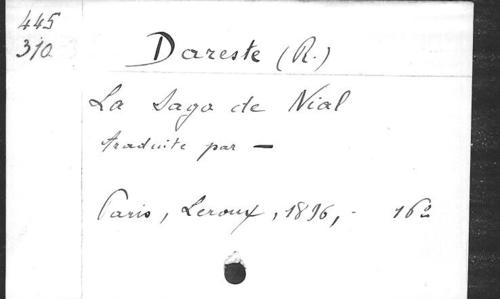 445
310
Dareste (R.)
La Saga de Nial
traduite par —
Paris, Leroux, 1896, - 16º